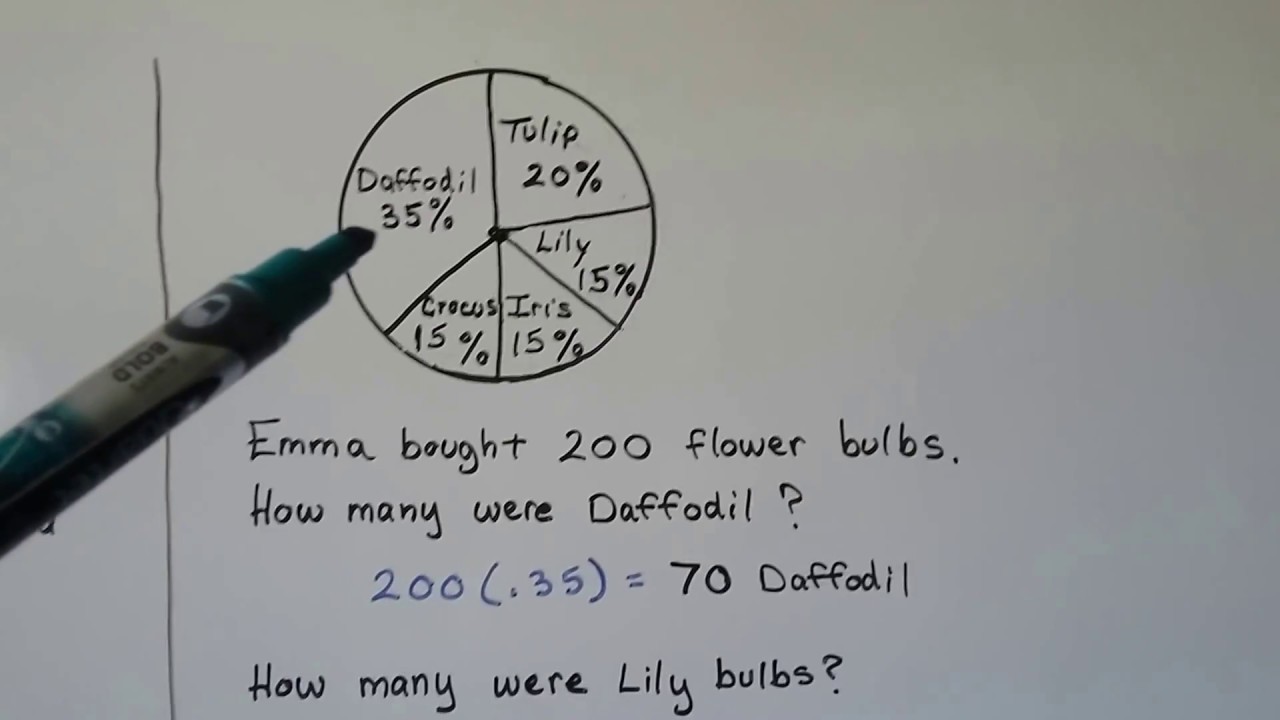 Tulip
20%
Daffodil
35%
Lily
15%
Crocus
15%
Iris
15%
BOLD
Emma bought 200 flower bulbs.
How many were Daffodil?
200(.35) = 70 Daffodil
How many were Lily bulbs?